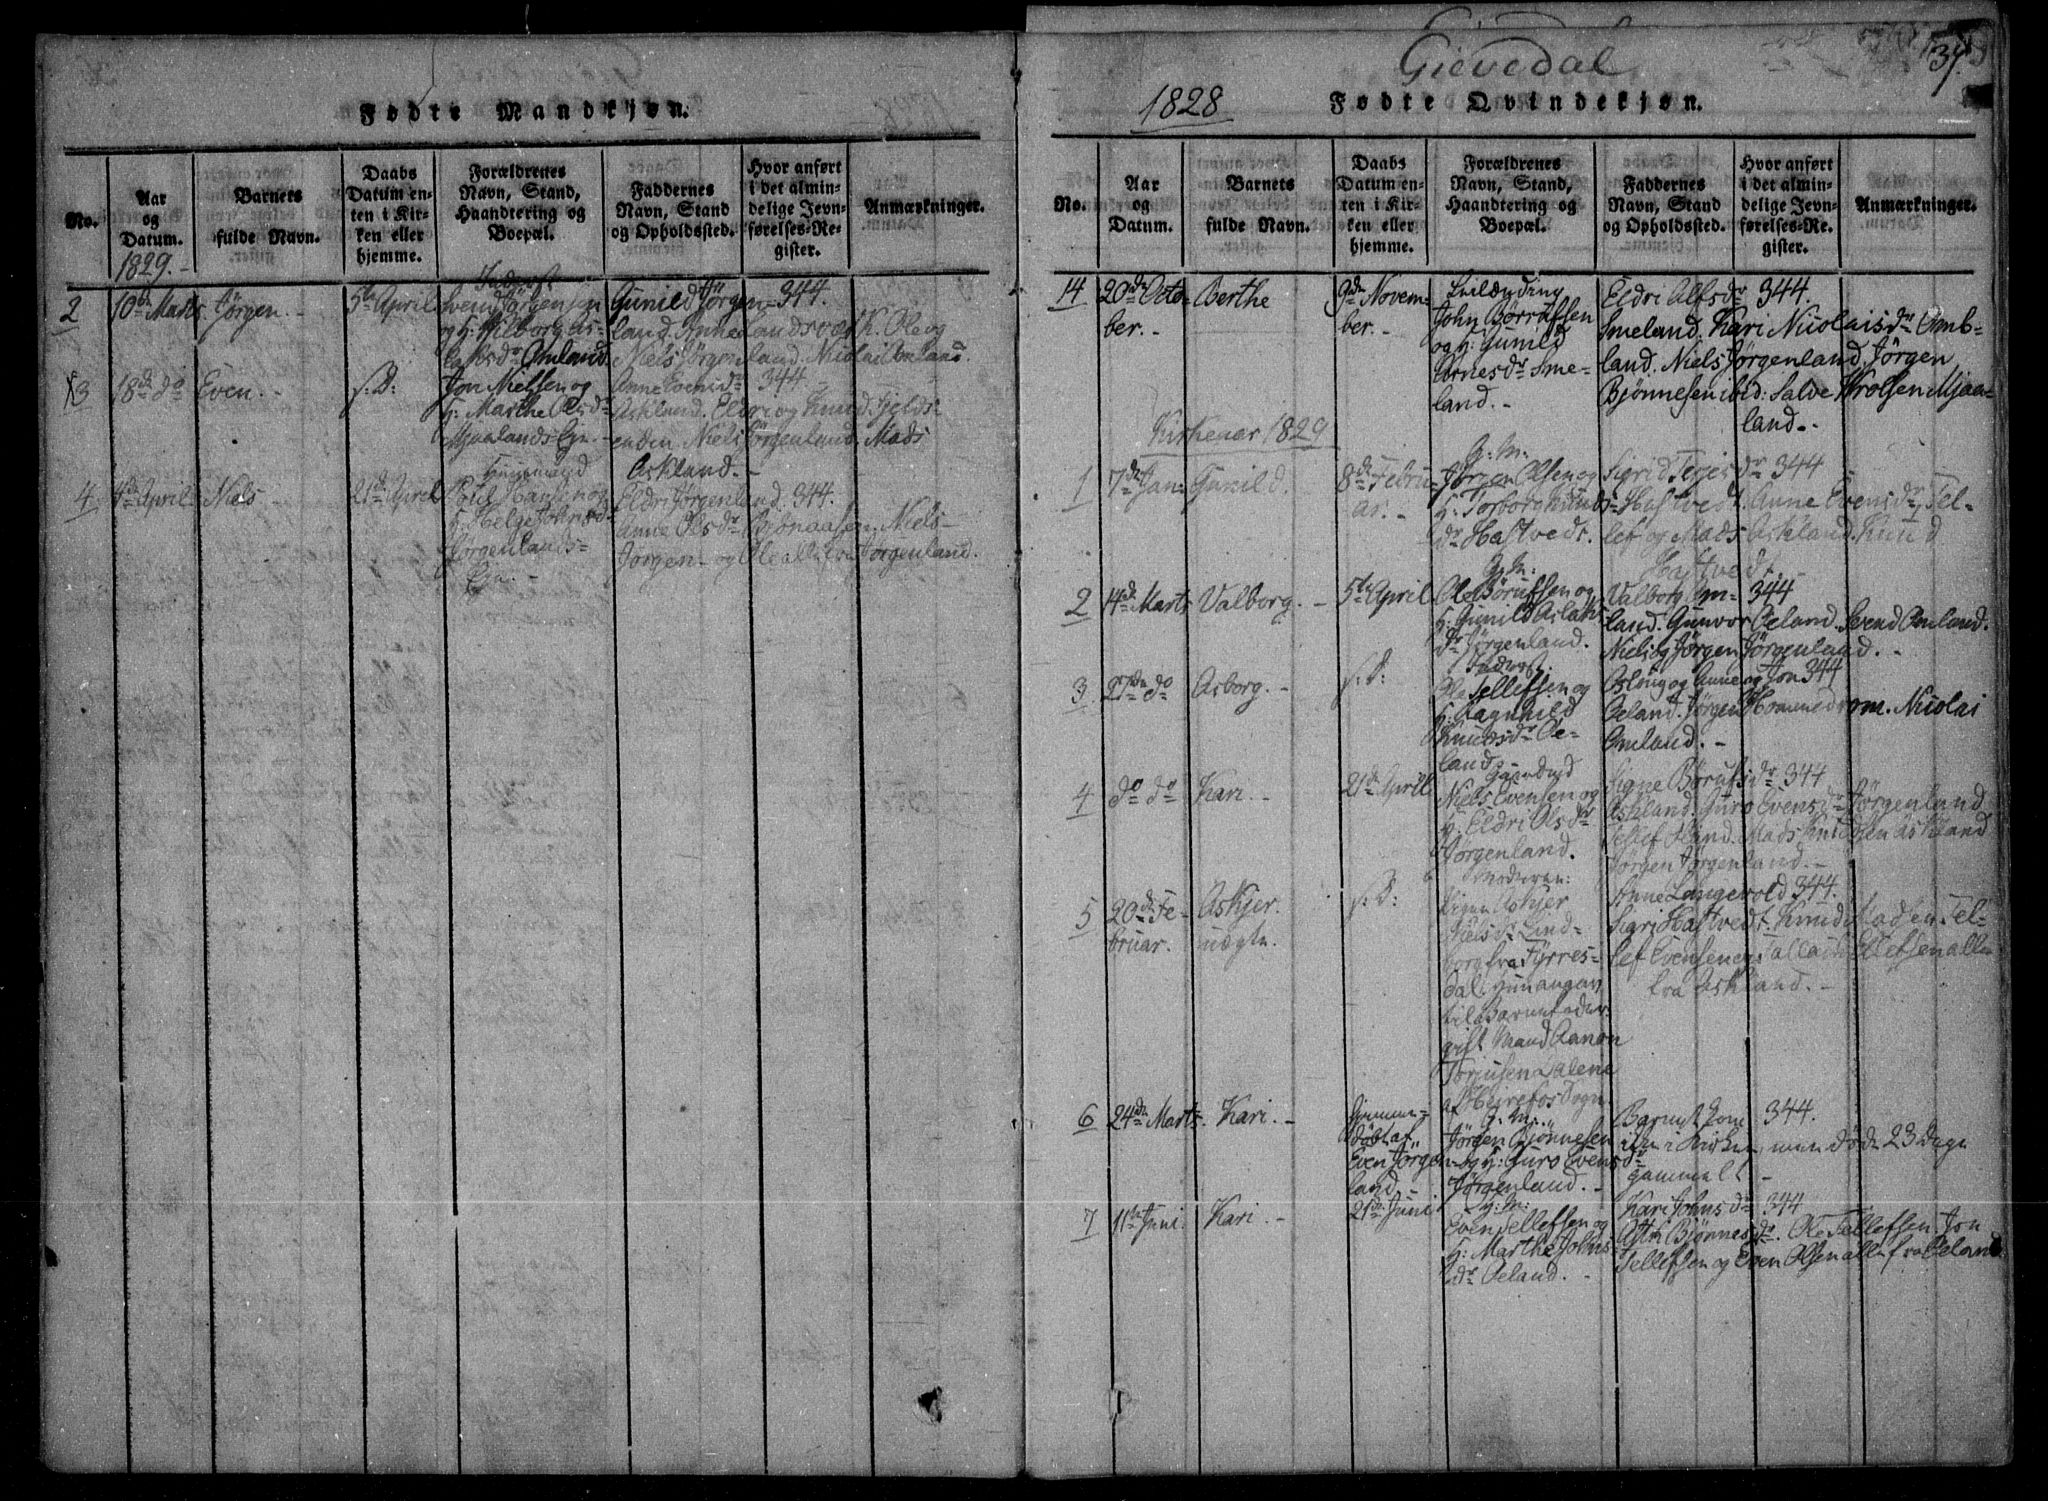 Fødte Mandkjøn.
No.
Aar
og
Datum.
Barnets
fulde Navn.
Daabs
Datum en-
ten i Kir-
ken eller
hjemme.
Forældrenes
Navn, Stand,
Haandtering og
Boepæl.
Faddernes
Navn, Stand
og Opholdssted.
Hvor anført
i det almin-
delige Jevn-
førelses-Re-
gister.
Anmærkninger.
1829.
2
10de Marts
Jørgen.
5te April
Svend Jørgensen
og H: Vilborg As-
laksdr Omland.
Gunild Jørgen-
land.
Ole og
Niels Jørgenland. Nicolai Omland.
344.
3
18de do
Even.
s. D:
Jon Nielsen og
H: Marthe Olsdr
Mjaalands Ejn.
Anne Evensdr
Askland. Eldri og Knud Fjelds-
enden. Niels Jørgenland. Mads
Askland.
344
4
4de April
Niels
21de April
Huusmand
Poul Hansen og
H: Helge Johnsdr
Jørgenlands-
Ejn.
Eldri Jørgenland.
Anne Olsdr
Niels
Jørgen og Ole alle fra Jørgenland.
344.
Gievedal
37.
1828
Fødte Qvindekjøn.
No.
Aar
og
Datum.
Barnets
fulde Navn.
Daabs
Datum en-
ten i Kir-
ken eller
hjemme.
Forældrenes
Navn, Stand,
Haandtering og
Boepæl.
Faddernes
Navn, Stand
og Opholdssted.
Hvor anført
i det almin-
delige Jevn-
førelses-Re-
gister.
Anmærkninger.
14
20de Octo-
ber.
Berthe
9de Novem-
ber.
Leilænding
John Børrufsen
og H: Gunild
Arnesdr Sme-
land.
Eldri Alfsdr
Smeland. Kari Nicolaisdr Omb-
land. Niels Jørgenland. Jørgen
Bjønnesen ibid: Salve Mjaa-
land.
344.
Kirkeaar 1829
1
7de Jan:
Gunild.
8de Febru-
ar.
G: M:
Jørgen Olsen og
H: Torborg Knuds-
dr Hastvedt.
Sigrid Terjesdr
Hastvedt. Anne Evensdr, Tel-
lef og Mads Askland. Knud
Hastvedt.
344
2
14de Marts
Valborg.
5te April
G: M:
Ole Børufsen og
H: Gunild Aslaks-
dr Jørgenland.
Valborg Om-
land. Gunvor Oeland. Svend Omland.
Niels og Jørgen Jørgenland.
344
3
27de do
Asborg.
s. D:
Inderst.
Ole Tellefsen og
H: Ragnhild
Knudsdr Oe-
land.
Aslaug og Anne og Jon
Oeland. Jørgen Hommedrom. Nicolai
Omland.
344
4
do do
Kari.
21de April
Gaardmd
Niels Evensen og
H: Eldri Olsdr
Jørgenland.
Signe Børufsdr
Askland. Guro Evensdr Jørgenland
Tellef Mads Knudsen Askland
Jørgen Jørgenland.
344
5
20de Fe-
bruar.
Askjer.
uægte.
s. D:
Moderen:
Pigen Askjer
Nielsdr Lind-
borg fra Fyrres-
dal. Hun angav
til Barnefader
gift Mand Aanon
Torjusen Dalene
af Hejrefos Sogn
Anne Langevold
Sigri Hastvedt. Knud Madsen Tel-
lef Evensen og Tallach Ellefsen alle
fra Askland.
344.
6
24de Marts
Kari.
Hjemme-
døbt af
Even Jørgen-
land.
G: M:
Jørgen Bjønnesen
og H: Guro Evensdr
Jørgenland.
Barnet kom
ikke i Kirken, men døde 23 Dage
gammelt.
344.
7
11te Juni.
Kari.
21de Juni
G: M:
Even Tellefsen og
H: Marthe Johns-
dr Oeland.
Kari Johnsdr
Bjørnesdr. Ole Tellefsen. Jon
Tellefsen og Even Olsen alle fra Oeland
344